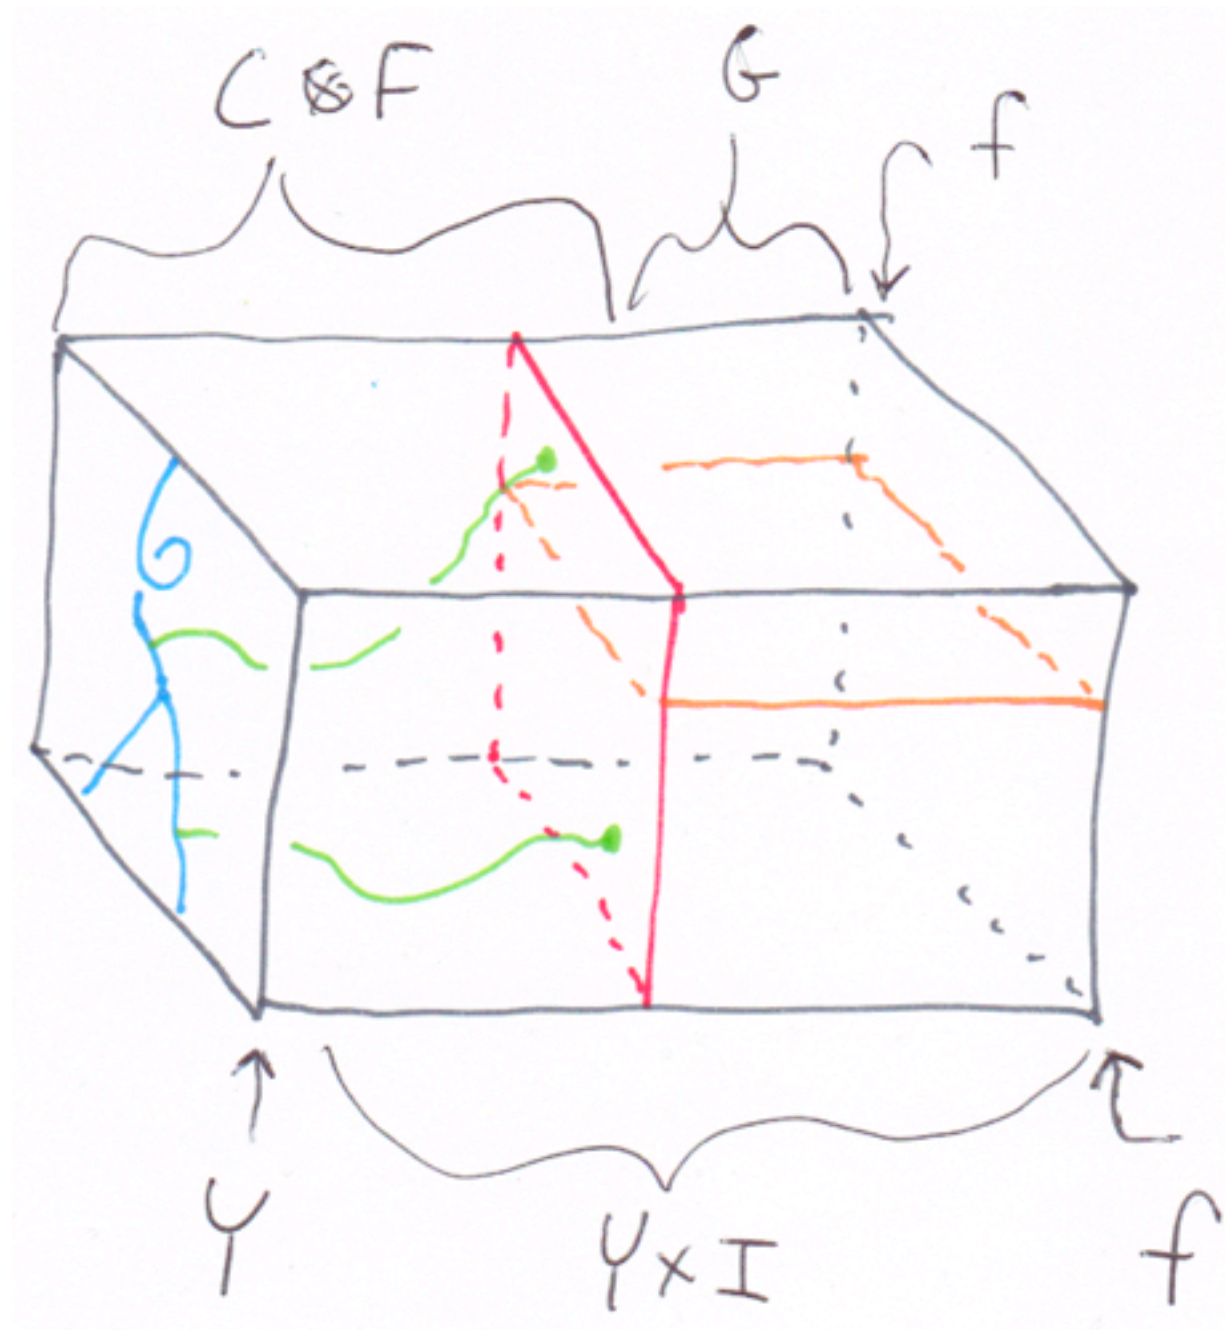 C ⊗ F
G
f
Y
Y × I
f